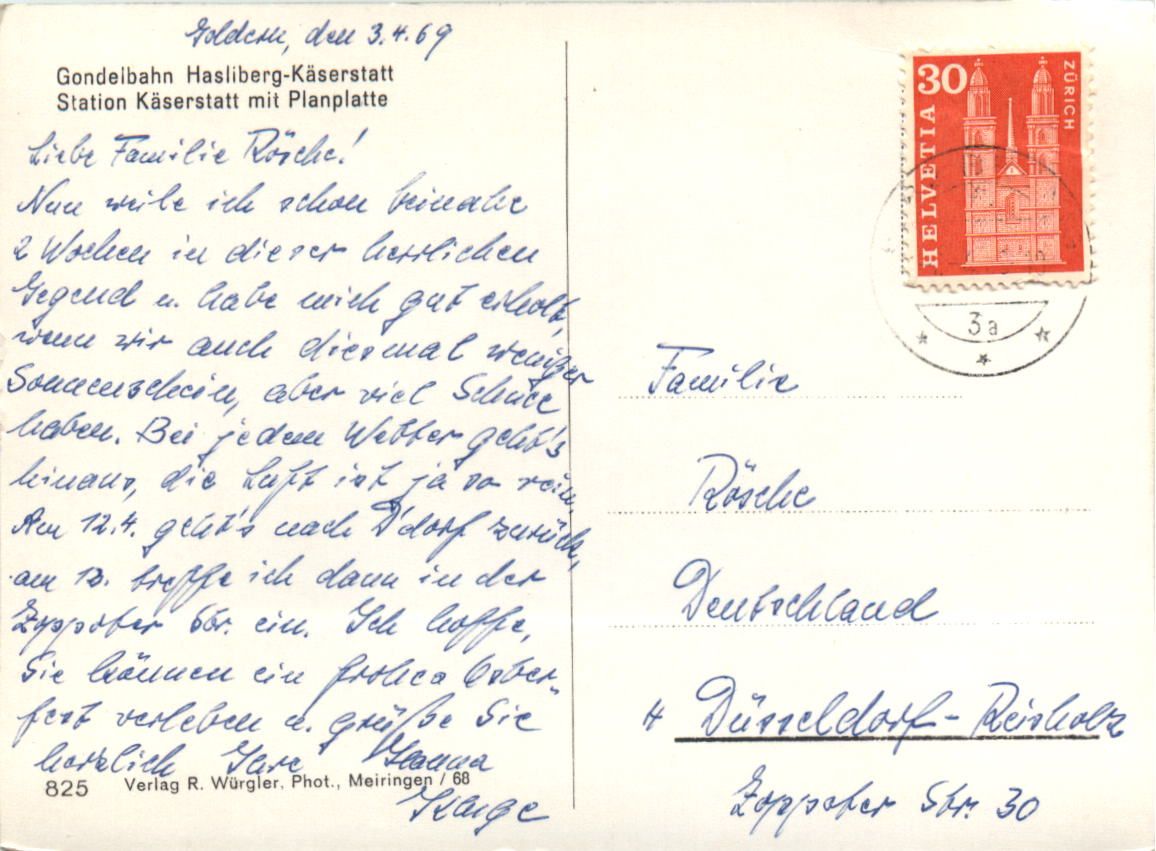 Goldern, den 3.4.69
Gondelbahn Hasliberg-Käserstatt
Station Käserstatt mit Planplatte
Liebe Familie Rösche!
Nun weile ich schon beinahe
2 Wochen in dieser herrlichen
Gegend u. habe mich gut erholt,
wenn wir auch diesmal weniger
Sonnenschein, aber viel Schnee
haben. Bei jedem Wetter geht's
hinaus, die Luft ist ja so rein.
Am 12.4. geht's nach D'dorf zurück,
am 13. treffe ich dann in der
Zoppoter Str. ein. Ich hoffe,
Sie können ein frohes Oster-
fest verleben u. grüße Sie
herzlich Ihre Hanna
825 Verlag R. Würgler, Phot., Meiringen / 68
HELVETIA
30
ZÜRICH
3a
Familie
Rösche
Deutschland
4 Düsseldorf-Reisholz
Zoppoter Str. 30